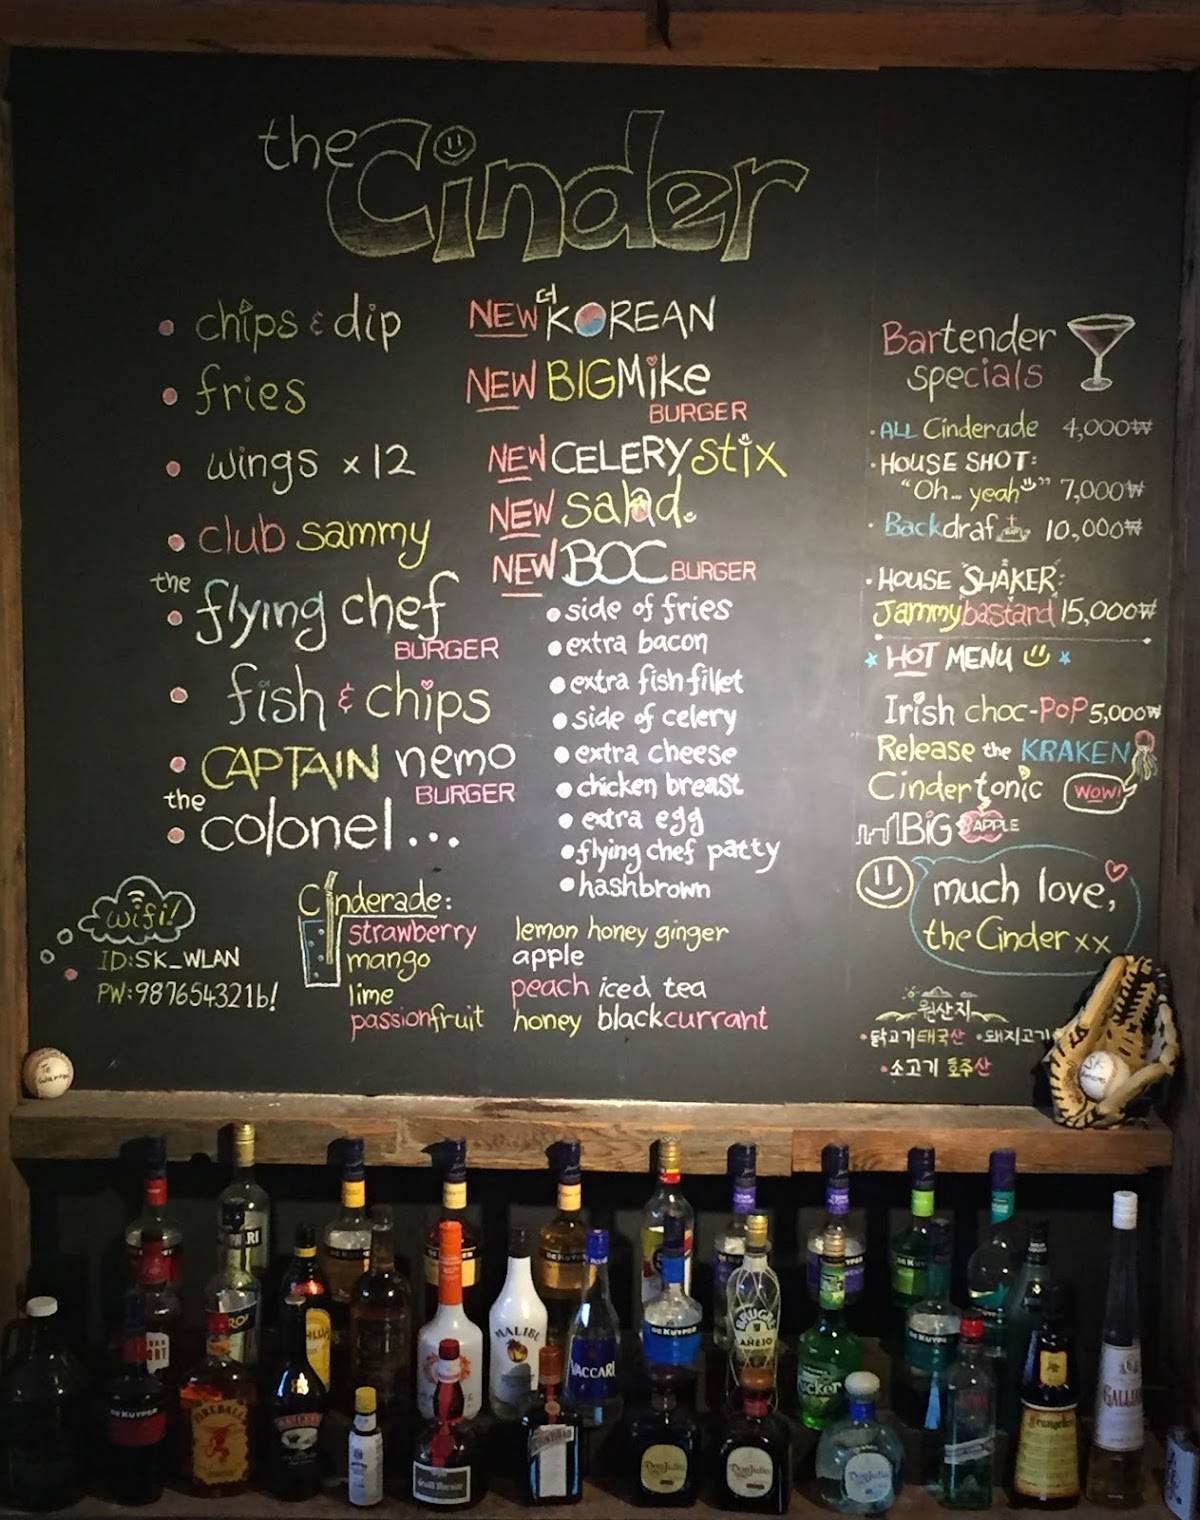 the Cinder
chips & dip
fries
wings x 12
club sammy
the
flying chef
BURGER
fish & chips
CAPTAIN nemo
BURGER
the
colonel...
NEW 더 KOREAN
NEW BIG Mike
BURGER
NEW CELERY Stix
NEW salad
NEW BOC BURGER
side of fries
extra bacon
extra fish fillet
side of celery
extra cheese
chicken breast
extra egg
flying chef patty
hashbrown
Bartender
specials
ALL Cinderade 4,000₩
HOUSE SHOT:
"Oh... yeah" 7,000₩
Backdraft 10,000₩
HOUSE SHAKER:
Jammybastard 15,000₩
HOT MENU
Irish choc-PoP 5,000₩
Release the KRAKEN
Cinder tonic WOW!
BIG APPLE
much love,
the Cinder xx
wifi!
ID:SK_WLAN
PW:987654321b!
Cinderade:
strawberry
mango
lime
passionfruit
lemon honey ginger
apple
peach iced tea
honey blackcurrant
원산지
닭고기 태국산 돼지고기
소고기 호주산
To
SK
DE KUYPER
MALIBU
VACCARI
BRUGAL
AÑEJO
DE KUYPER
DE KUYPER
DE KUYPER
FIREBALL
Don Julio
Don Julio
Don Julio
Frangelico
GALLIANO